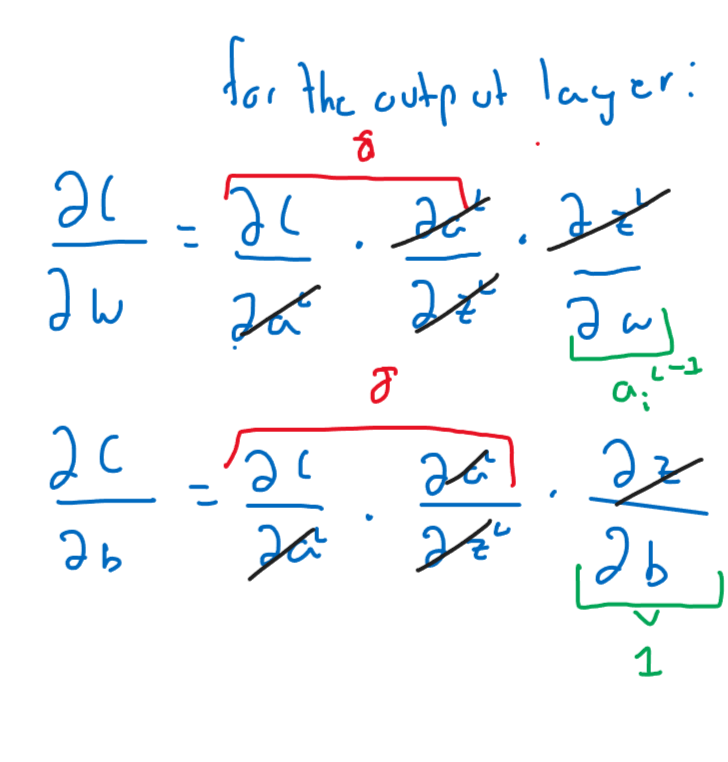 for the output layer:
δ
∂C/∂w = ∂C/∂a^L · ∂a^L/∂z^L · ∂z^L/∂w
a_i^{L-1}
δ
∂C/∂b = ∂C/∂a^L · ∂a^L/∂z^L · ∂z/∂b
1